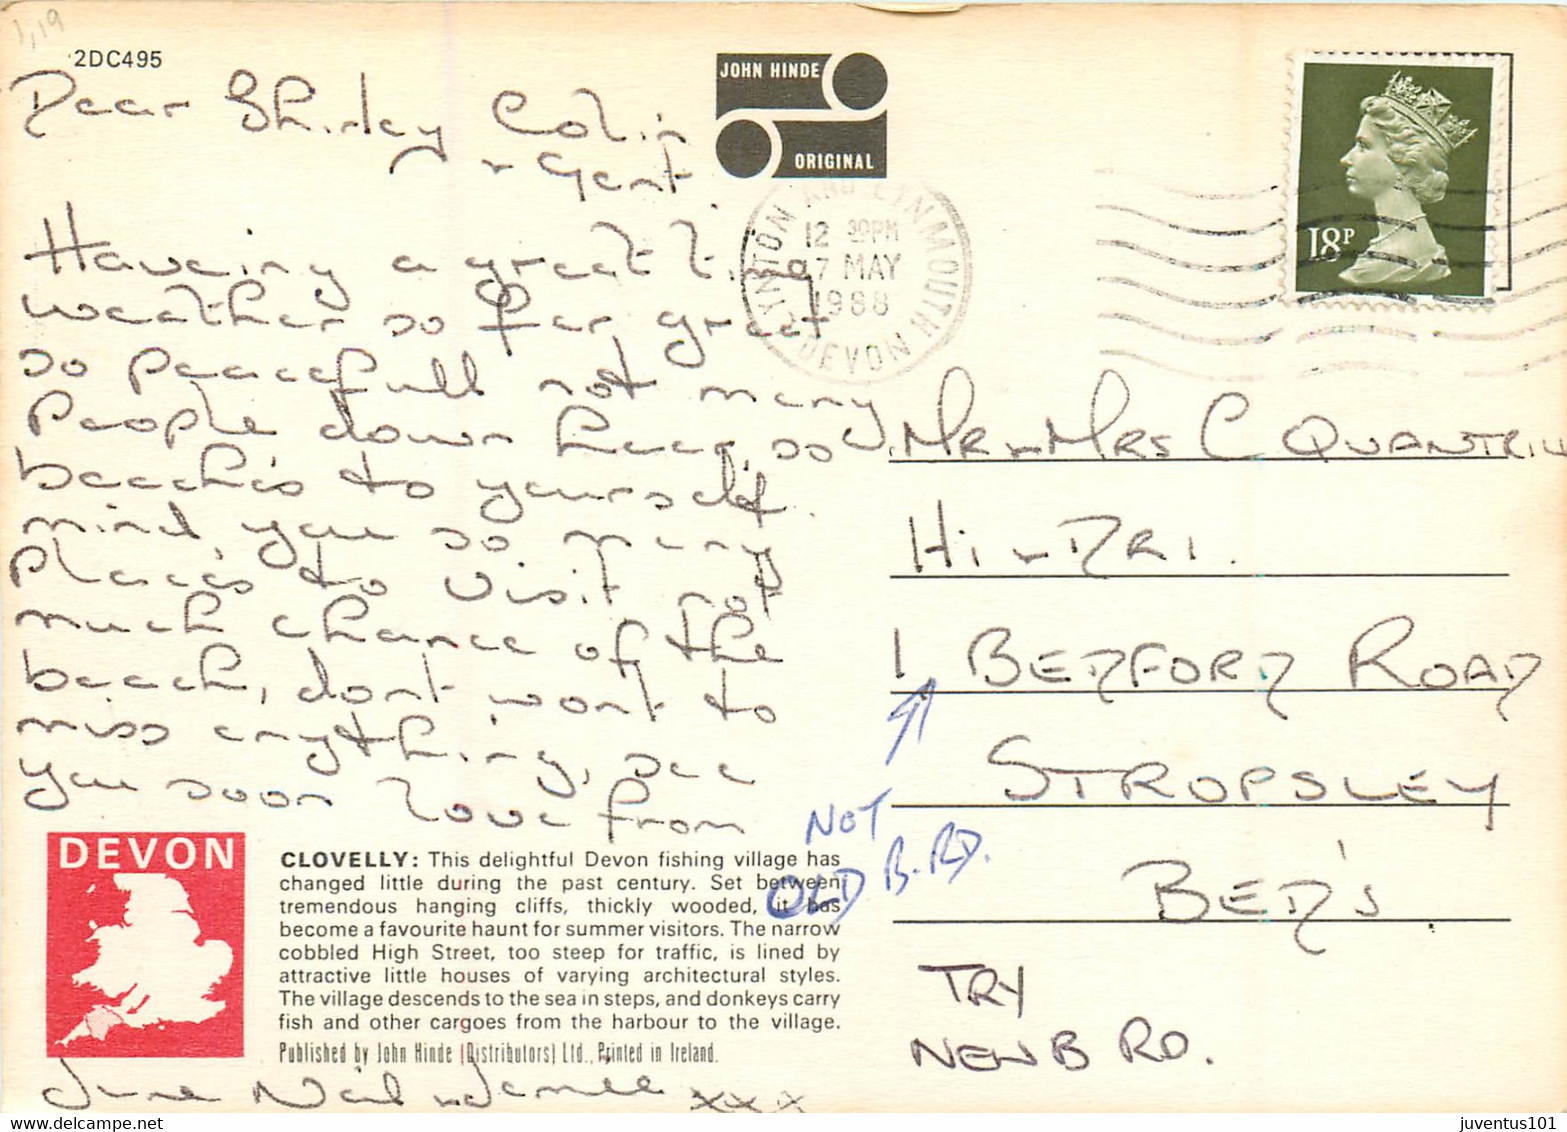 1,19
2DC495
JOHN HINDE
ORIGINAL
Dear Shirley Colin
+ Gent
Haveing a great time
weather so far great
so peacefull not many
People down here, so
beachs to yourself.
mind you so many
Places to visit not
much chance of the
beach, dont wont to
miss anything, see
you soon love from
June Neil + Jamie xxx
LYNTON AND LYNMOUTH
12 30PM
17 MAY
1988
DEVON
18P
Mr + Mrs C QUANTRILL
HI
1 BEDFORD ROAD
STROPSLEY
BED'S
NOT
OLD B. RD.
TRY
NEW B RD.
DEVON
CLOVELLY: This delightful Devon fishing village has
changed little during the past century. Set between
tremendous hanging cliffs, thickly wooded, it has
become a favourite haunt for summer visitors. The narrow
cobbled High Street, too steep for traffic, is lined by
attractive little houses of varying architectural styles.
The village descends to the sea in steps, and donkeys carry
fish and other cargoes from the harbour to the village.
Published by John Hinde (Distributors) Ltd., Printed in Ireland.
juventus101